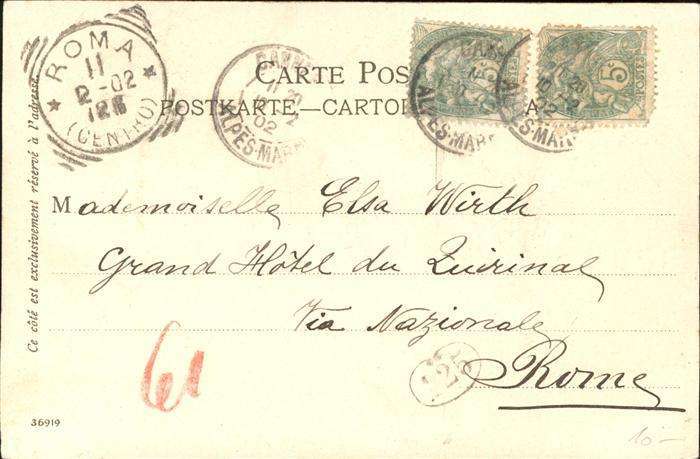 ROMA
11
2-02
12
(CENTRO)
CANN
02
ALPES-MAR
CARTE POS
POSTKARTE.—CARTO
5
POSTES
5
POSTES
ALPES-MAR
ALPES-MAR
Ce côté est exclusivement réservé à l'adresse.
Mademoiselle Elsa Wirth
Grand Hôtel du Quirinal
Via Nazionale
Rome
61
36919
10-